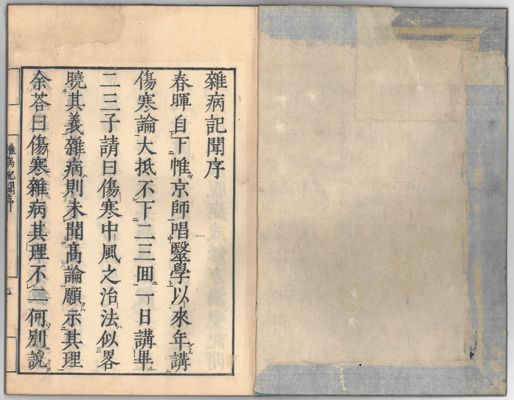 雜病記聞序
春暉自下帷京師唱毉學以來年講
傷寒論大抵不下二三囬一日講畢
二三子請曰傷寒中風之治法似畧
曉其義雜病則未聞髙論願示其理
余荅曰傷寒雜病其理不二何別說
雜病記聞序